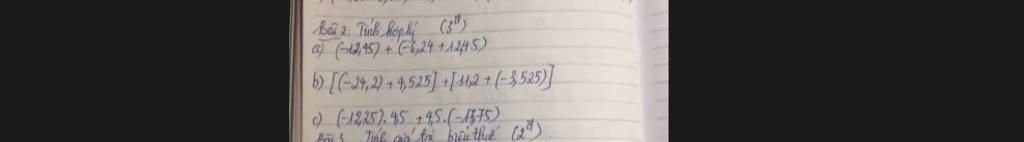 Bài 2. Tính hợp lý (3đ)
a) (-12,45) + (-6,24 + 12,45)
b) [(-24,2) + 4,525] + [11,2 + (-3,525)]
c) (-12,25).4,5 + 4,5.(-17,75)
Bài 3. Tính giá trị biểu thức (2đ)